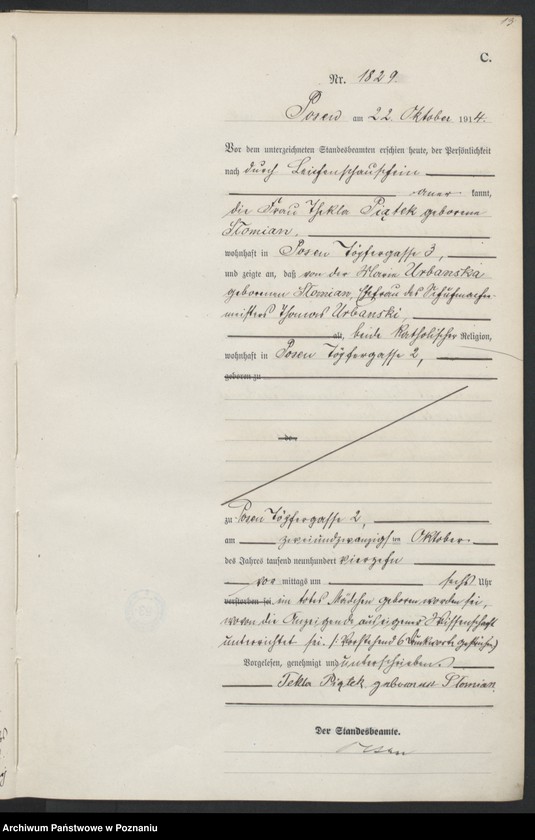 13
C.
Nr. 1829.
Posen am 22. Oktober 1914.
Vor dem unterzeichneten Standesbeamten erschien heute, der Persönlichkeit
nach durch Leichenschauschein
aner kannt,
die Frau Thekla Piątek geborene
Słomian,
wohnhaft in Posen Töpfergasse 3,
und zeigte an, daß von der Maria Urbanska
geborenen Słomian, Ehefrau des Schuhmacher-
meisters Thomas Urbanski,
alt, beide katholischer Religion,
wohnhaft in Posen Töpfergasse 2,
geboren zu
zu Posen Töpfergasse 2,
am zweiundzwanzigsten Oktober
des Jahres tausend neunhundert vierzehn
vor mittags um sechs Uhr
verstorben sei, ein totes Mädchen geboren worden sei,
wovon die Anzeigende aus eigener Wissenschaft
unterrichtet sei. (Vorstehend 6 Druckworte gestrichen)
Vorgelesen, genehmigt und unterschrieben.
Tekla Piątek geborene Słomian.
Der Standesbeamte.
Archiwum Państwowe w Poznaniu